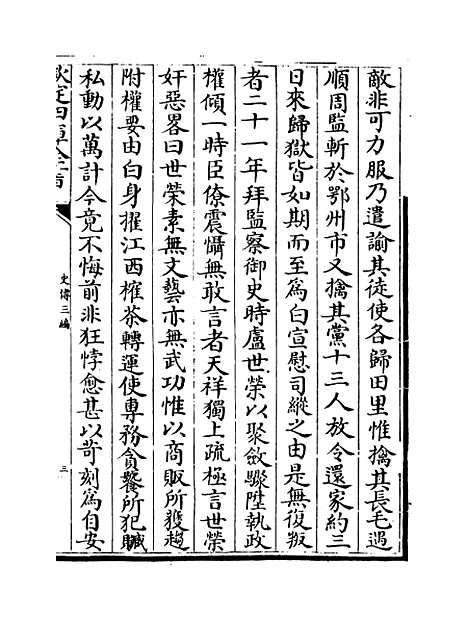 敵非可力服乃遣諭其徒使各歸田里惟擒其長毛遇
順周監斬於鄂州市又擒其黨十三人放令還家約三
日來歸獄皆如期而至為白宣慰司縱之由是無復叛
者二十一年拜監察御史時盧世榮以聚斂驟陞執政
權傾一時臣僚震懾無敢言者天祥獨上疏極言世榮
奸惡畧曰世榮素無文藝亦無武功惟以商販所獲趨
附權要由白身擢江西榷茶轉運使專務貪饕所犯贓
私動以萬計今竟不悔前非狂悖愈甚以苛刻為自安
欽定四庫全書
史傳三編
三